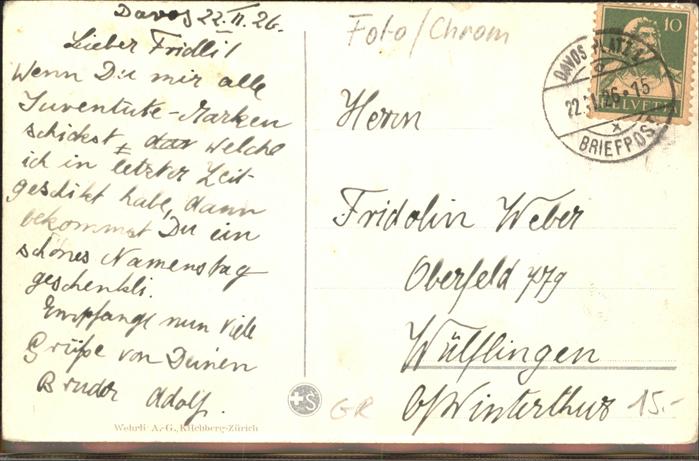 Davos 22.II.26.
Lieber Fridli!
Wenn Du mir alle
Juventute-Marken
schickst, welche
ich in letzter Zeit
geschikt habe, dann
bekommst Du ein
schönes Namenstag
geschenkli.
Empfange nun viele
Grüße von Deinen
Bruder Adolf.
Wehrli A.-G., Kilchberg-Zürich
Foto/Chrom
10
HELVETIA
DAVOS-PLATZ
BRIEFPOST
Herrn
Fridolin Weber
Oberfeld
Wülflingen
b/Winterthur
+S
GR
15.-